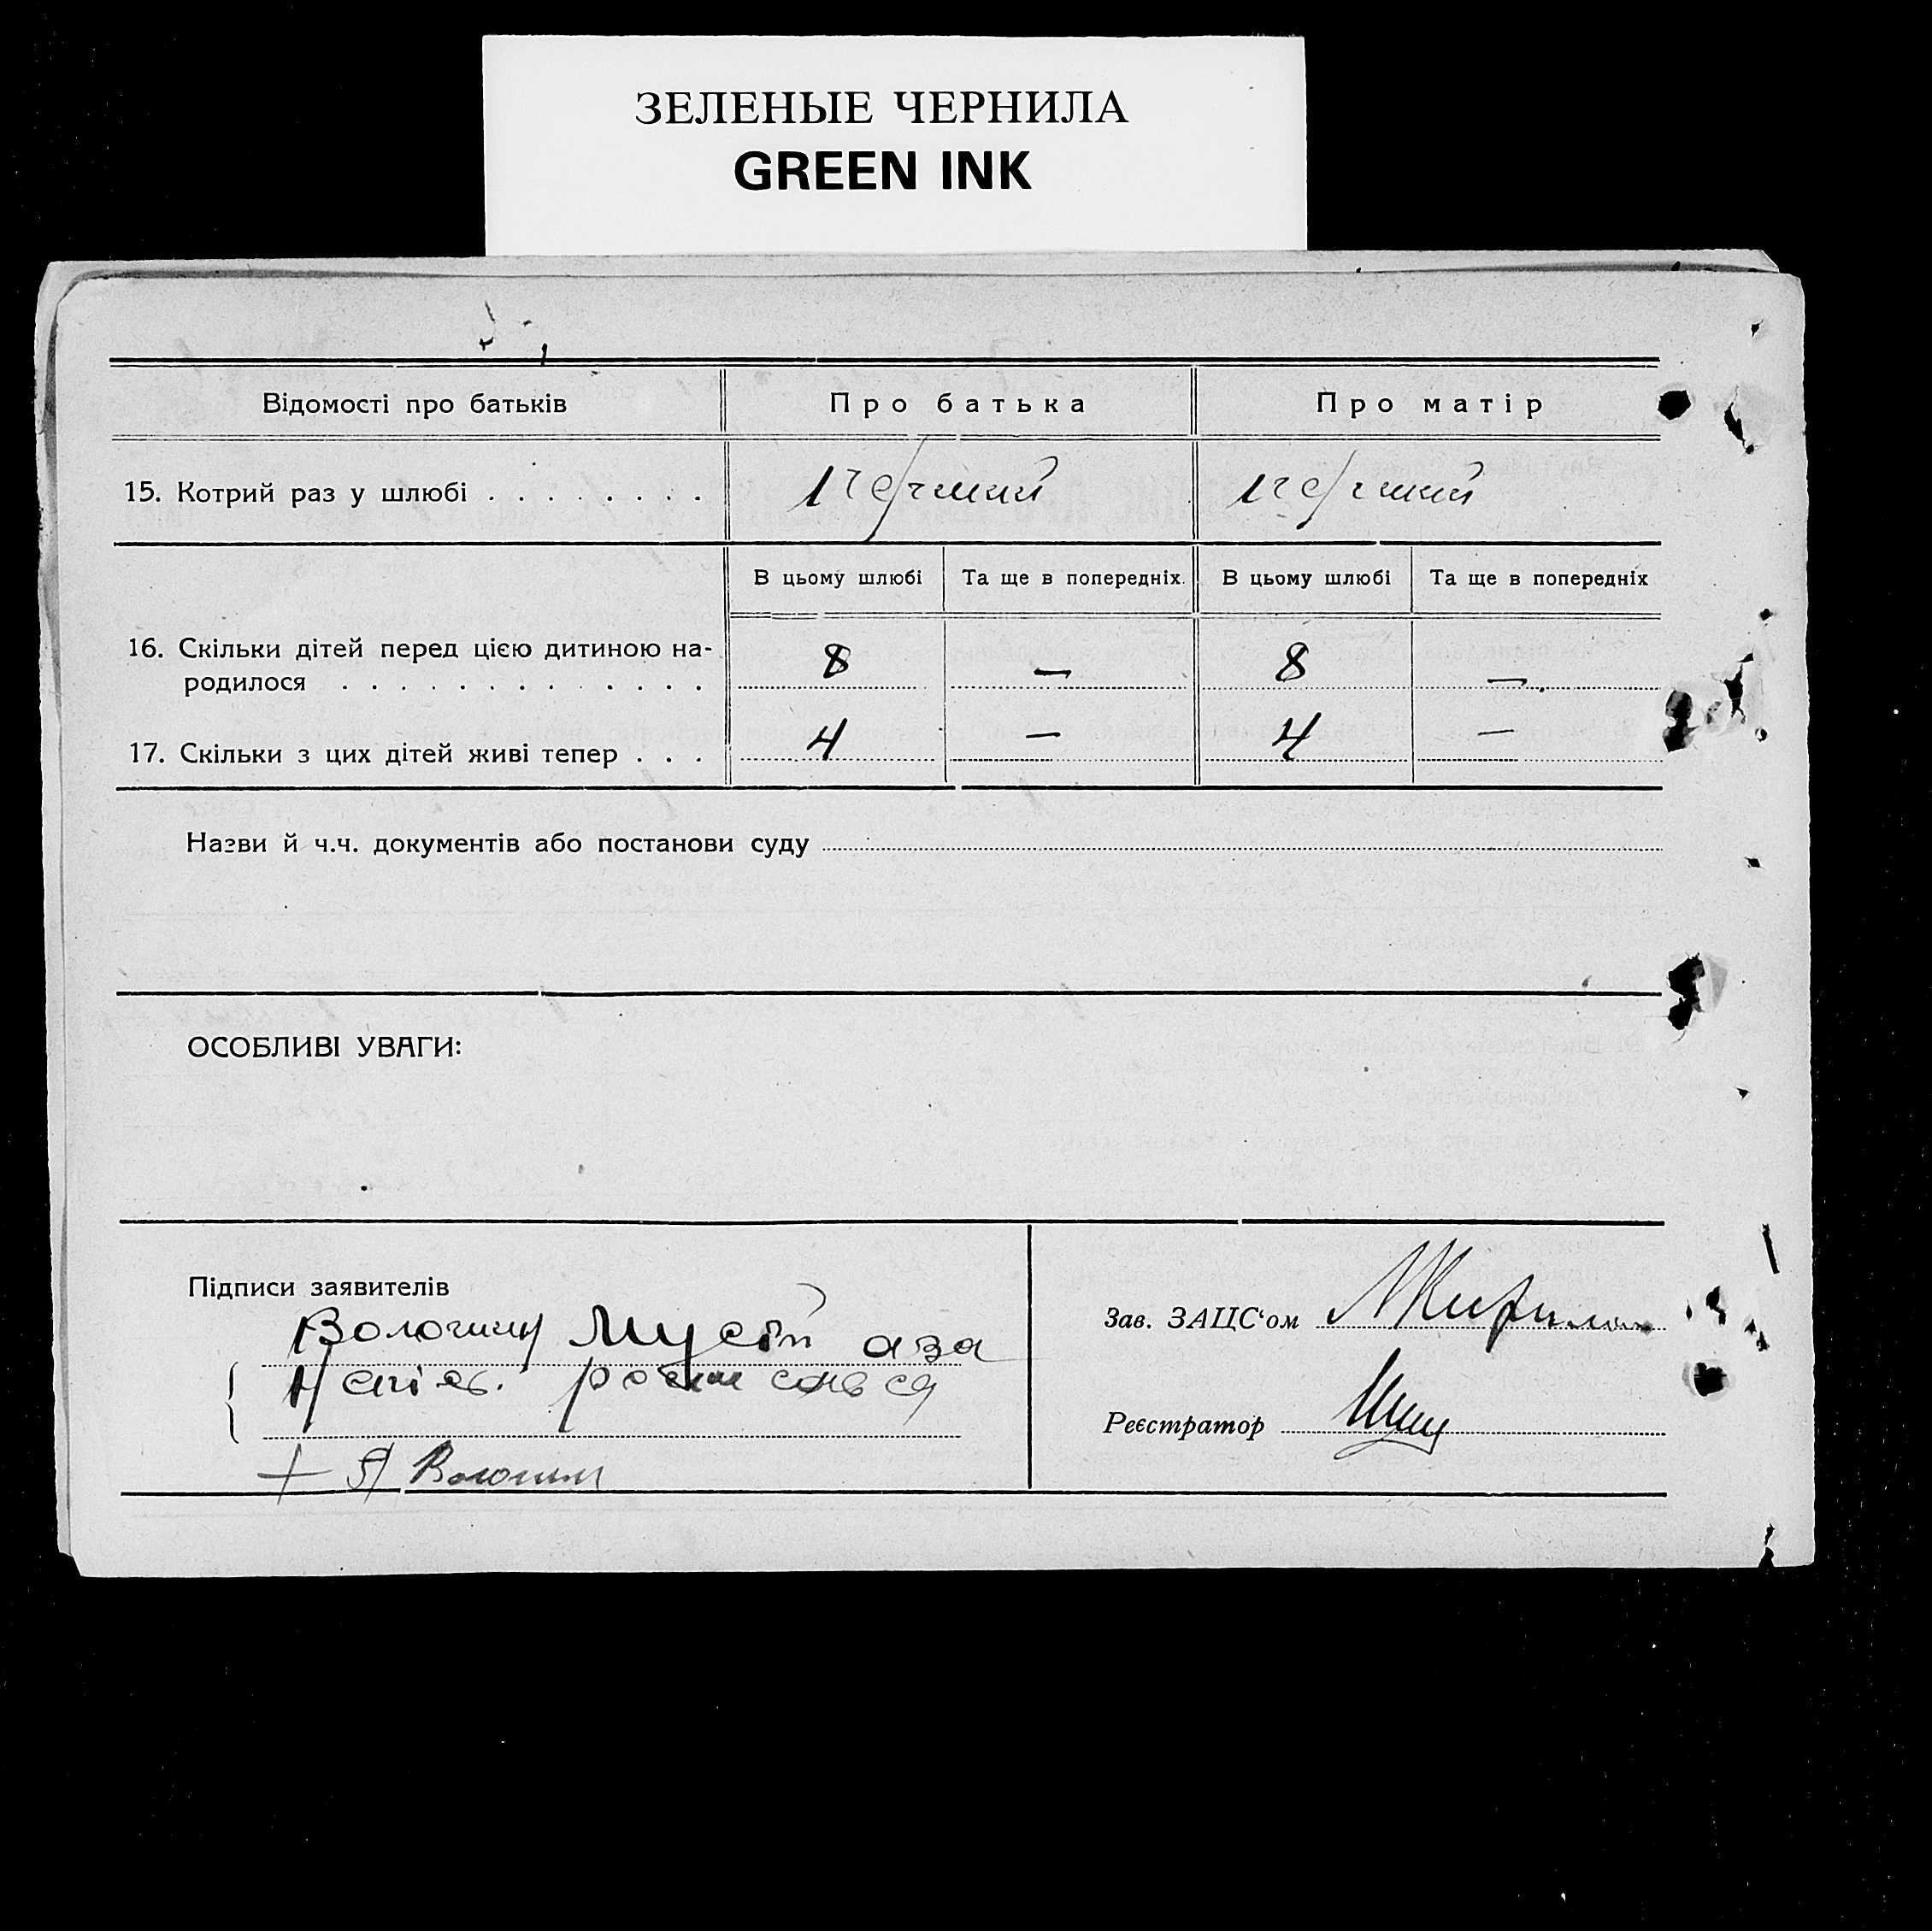 ЗЕЛЕНЫЕ ЧЕРНИЛА
GREEN INK
Відомості про батьків Про батька Про матір
15. Котрий раз у шлюбі . . . . . . . . перший перший
В цьому шлюбі Та ще в попередніх. В цьому шлюбі Та ще в попередніх
16. Скільки дітей перед цією дитиною на-
родилося . . . . . . . . . . . . . 8 — 8 —
17. Скільки з цих дітей живі тепер . . . 4 — 4 —
Назви й ч.ч. документів або постанови суду
ОСОБЛИВІ УВАГИ:
Підписи заявителів
Волошин
Зав. ЗАЦС‘ом
Реєстратор
+ Я Волошин